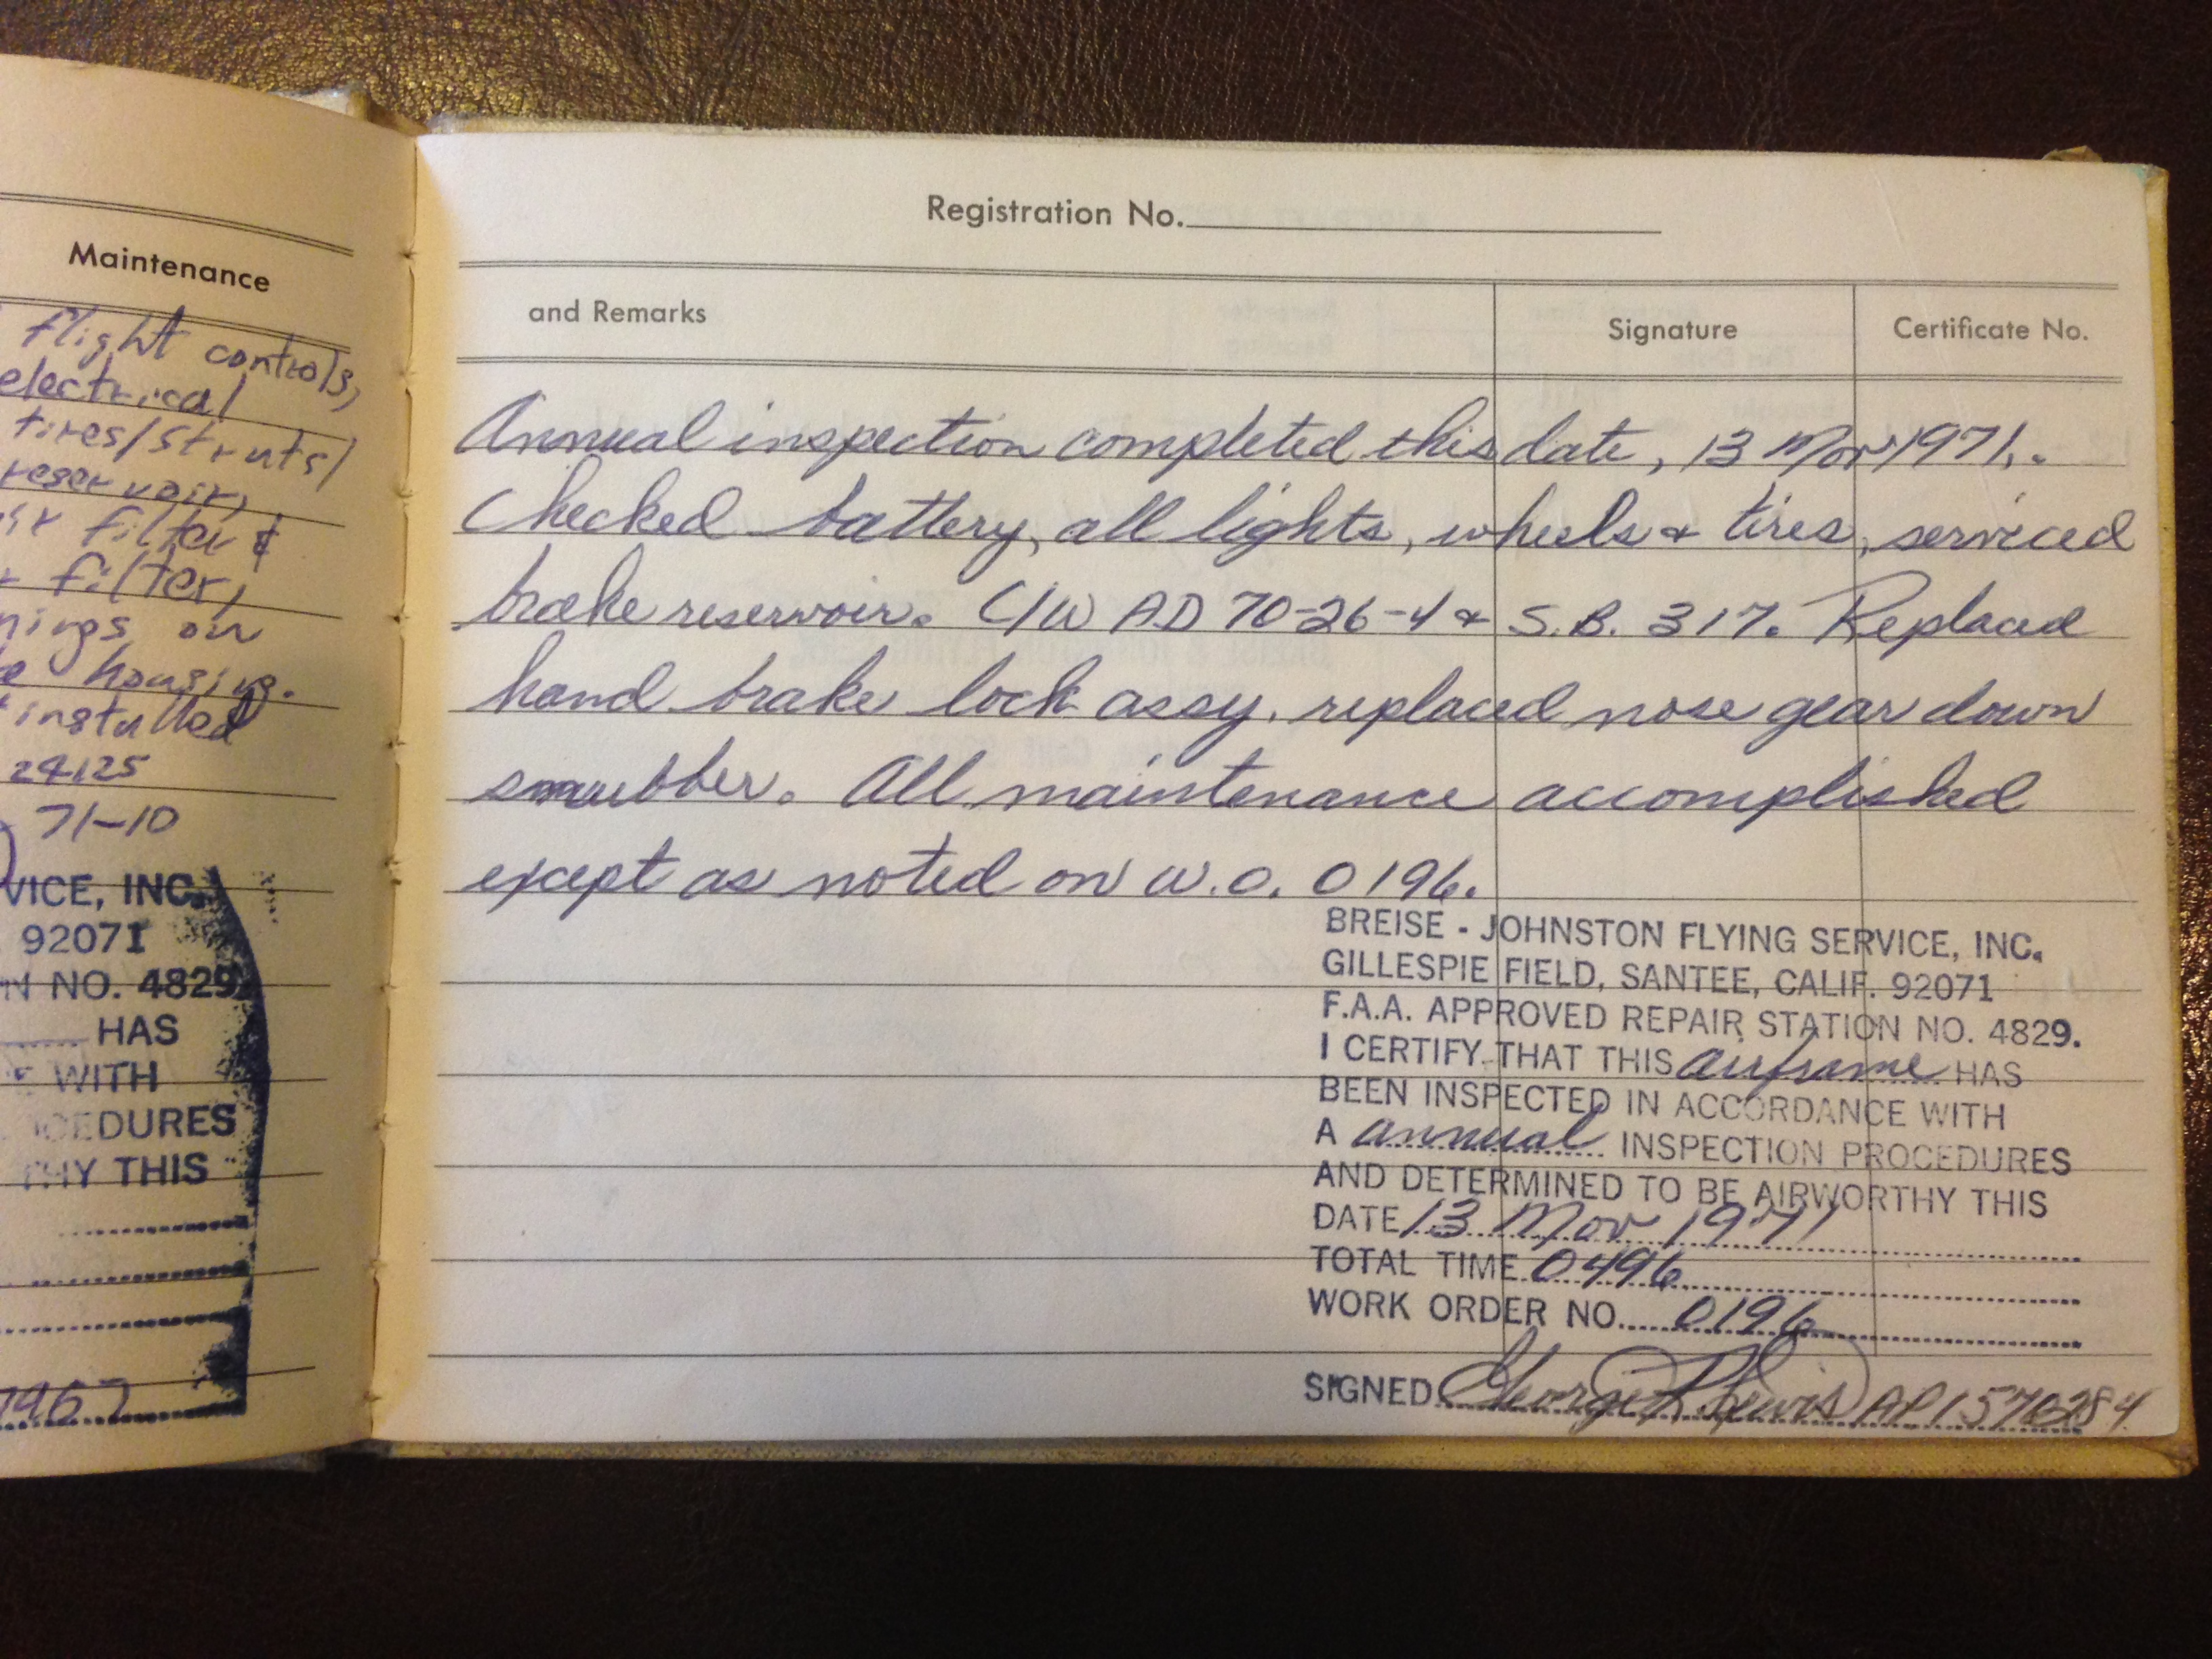 Maintenance
flight controls,
electrical
tires/struts/
reservoir,
filter &
filter,
on
housing.
installed
24125
71-10
VICE, INC.
92071
N NO. 4829
HAS
WITH
EDURES
THY THIS
1967
Registration No.
and Remarks Signature Certificate No.
Annual inspection completed this date, 13 Mar 1971.
Checked battery, all lights, wheels & tires, serviced
brake reservoir. C/W AD 70-26-4 & S.B. 317. Replaced
hand brake lock assy, replaced nose gear down
snubber. All maintenance accomplished
except as noted on W.O. 0196.
BREISE - JOHNSTON FLYING SERVICE, INC.
GILLESPIE FIELD, SANTEE, CALIF. 92071
F.A.A. APPROVED REPAIR STATION NO. 4829.
I CERTIFY THAT THIS airframe HAS
BEEN INSPECTED IN ACCORDANCE WITH
A annual INSPECTION PROCEDURES
AND DETERMINED TO BE AIRWORTHY THIS
DATE 13 Mar 1971
TOTAL TIME 0496
WORK ORDER NO. 0196
SIGNED George Lewis AP1576284